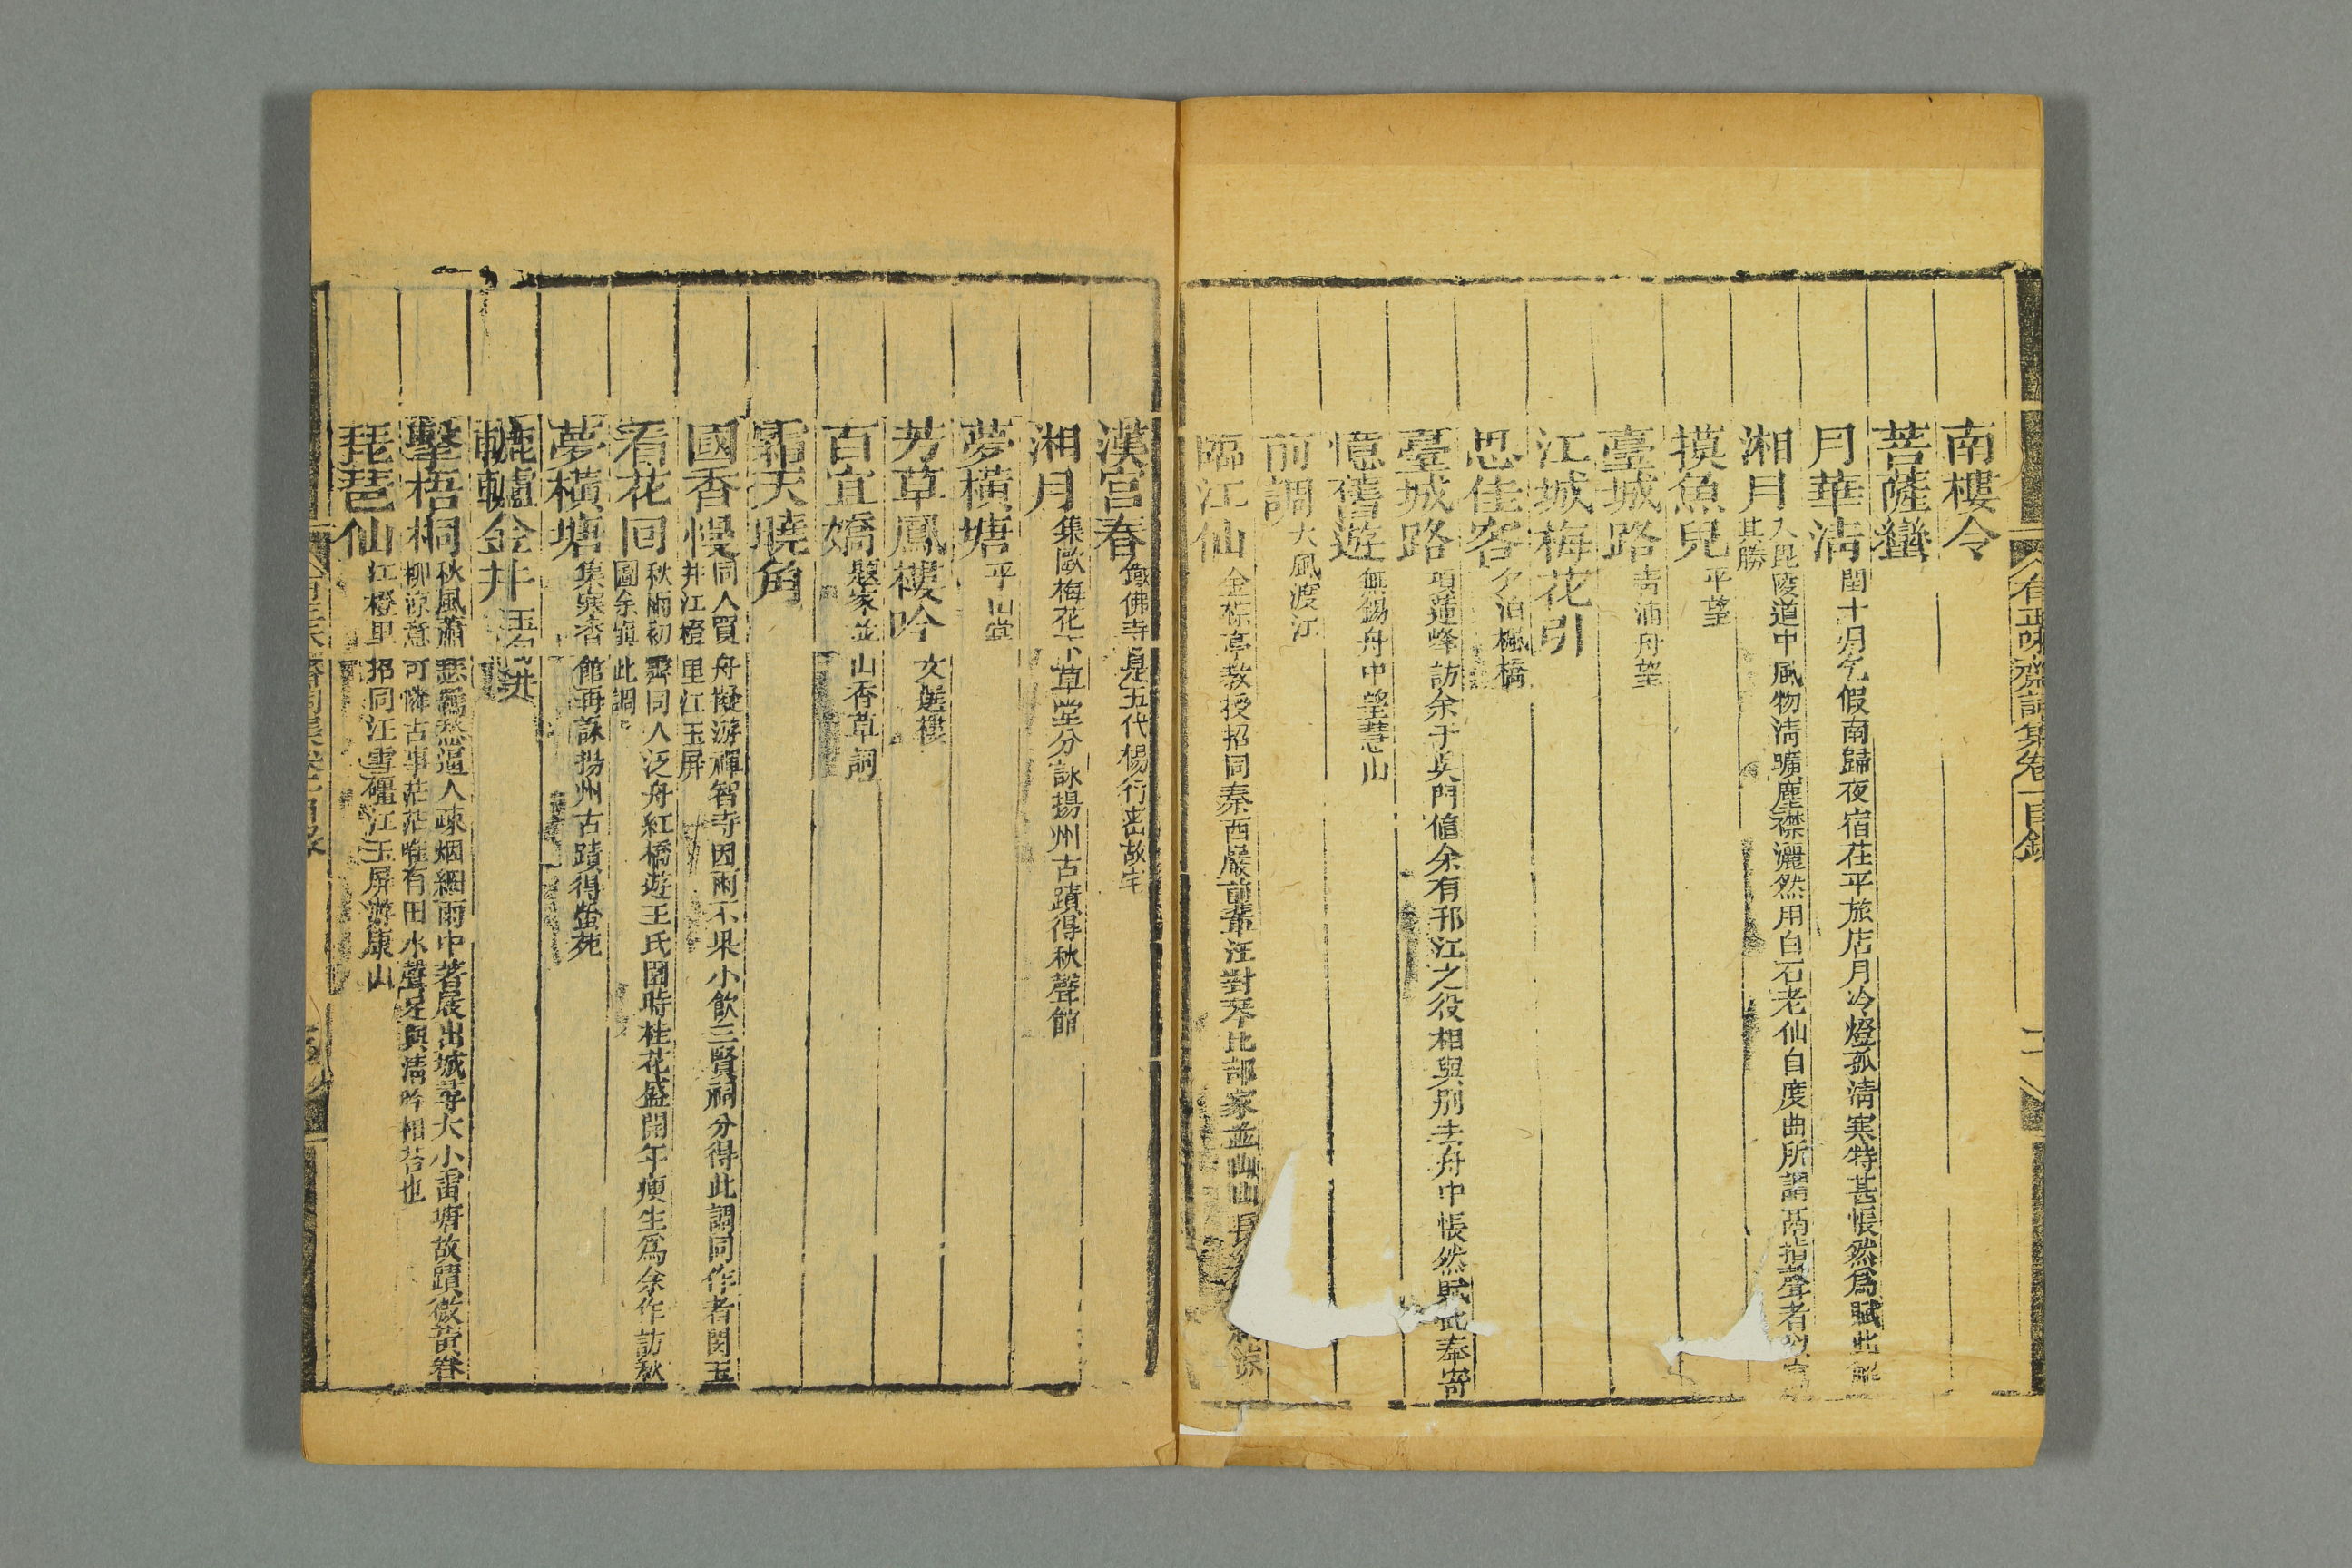 有正味齋詞集卷一目錄
南樓令
菩薩蠻
月華清 閏十月乞假南歸夜宿茌平旅店月冷燈孤淸寒特甚悵然爲賦此解
湘月 入毘陵道中風物淸曠塵襟灑然用白石老仙自度曲所謂鬲指聲者
其勝
摸魚兒 平望
臺城路 靑浦舟望
江城梅花引
思佳客 夕泊楓橋
臺城路 項蓮峰訪余于吳門値余有邗江之役相與別去舟中悵然賦此奉寄
憶舊遊 無錫舟中望慧山
前調 大風渡江
臨江仙 金棕亭敎授招同秦西巖前輩汪對琴比部家並山山長
漢宮春 鐵佛寺是五代楊行密故宅
湘月 集歐梅花下草堂分詠揚州古蹟得秋聲館
夢橫塘 平山堂
芳草鳳樓吟 文選樓
百宜嬌 題家並山香草詞
霜天曉角
國香慢 同人買舟擬游禪智寺因雨不果小飮三賢祠分得此調同作者閔玉
井江橙里江玉屏
看花回 秋雨初霽同人泛舟紅橋遊王氏園時桂花盛開年痩生爲余作訪秋
圖余塡此調
夢橫塘 集寒杏館再詠揚州古蹟得螢苑
轆轤金井 玉勾洞
擊梧桐 秋風蕭瑟羈愁逼人疎烟細雨中著屐出城尋大小雷塘故蹟微黃卷
柳涼意可憐古事茫茫唯有田水聲足與淸吟相荅也
琵琶仙 江橙里招同汪雪礓江玉屏游康山